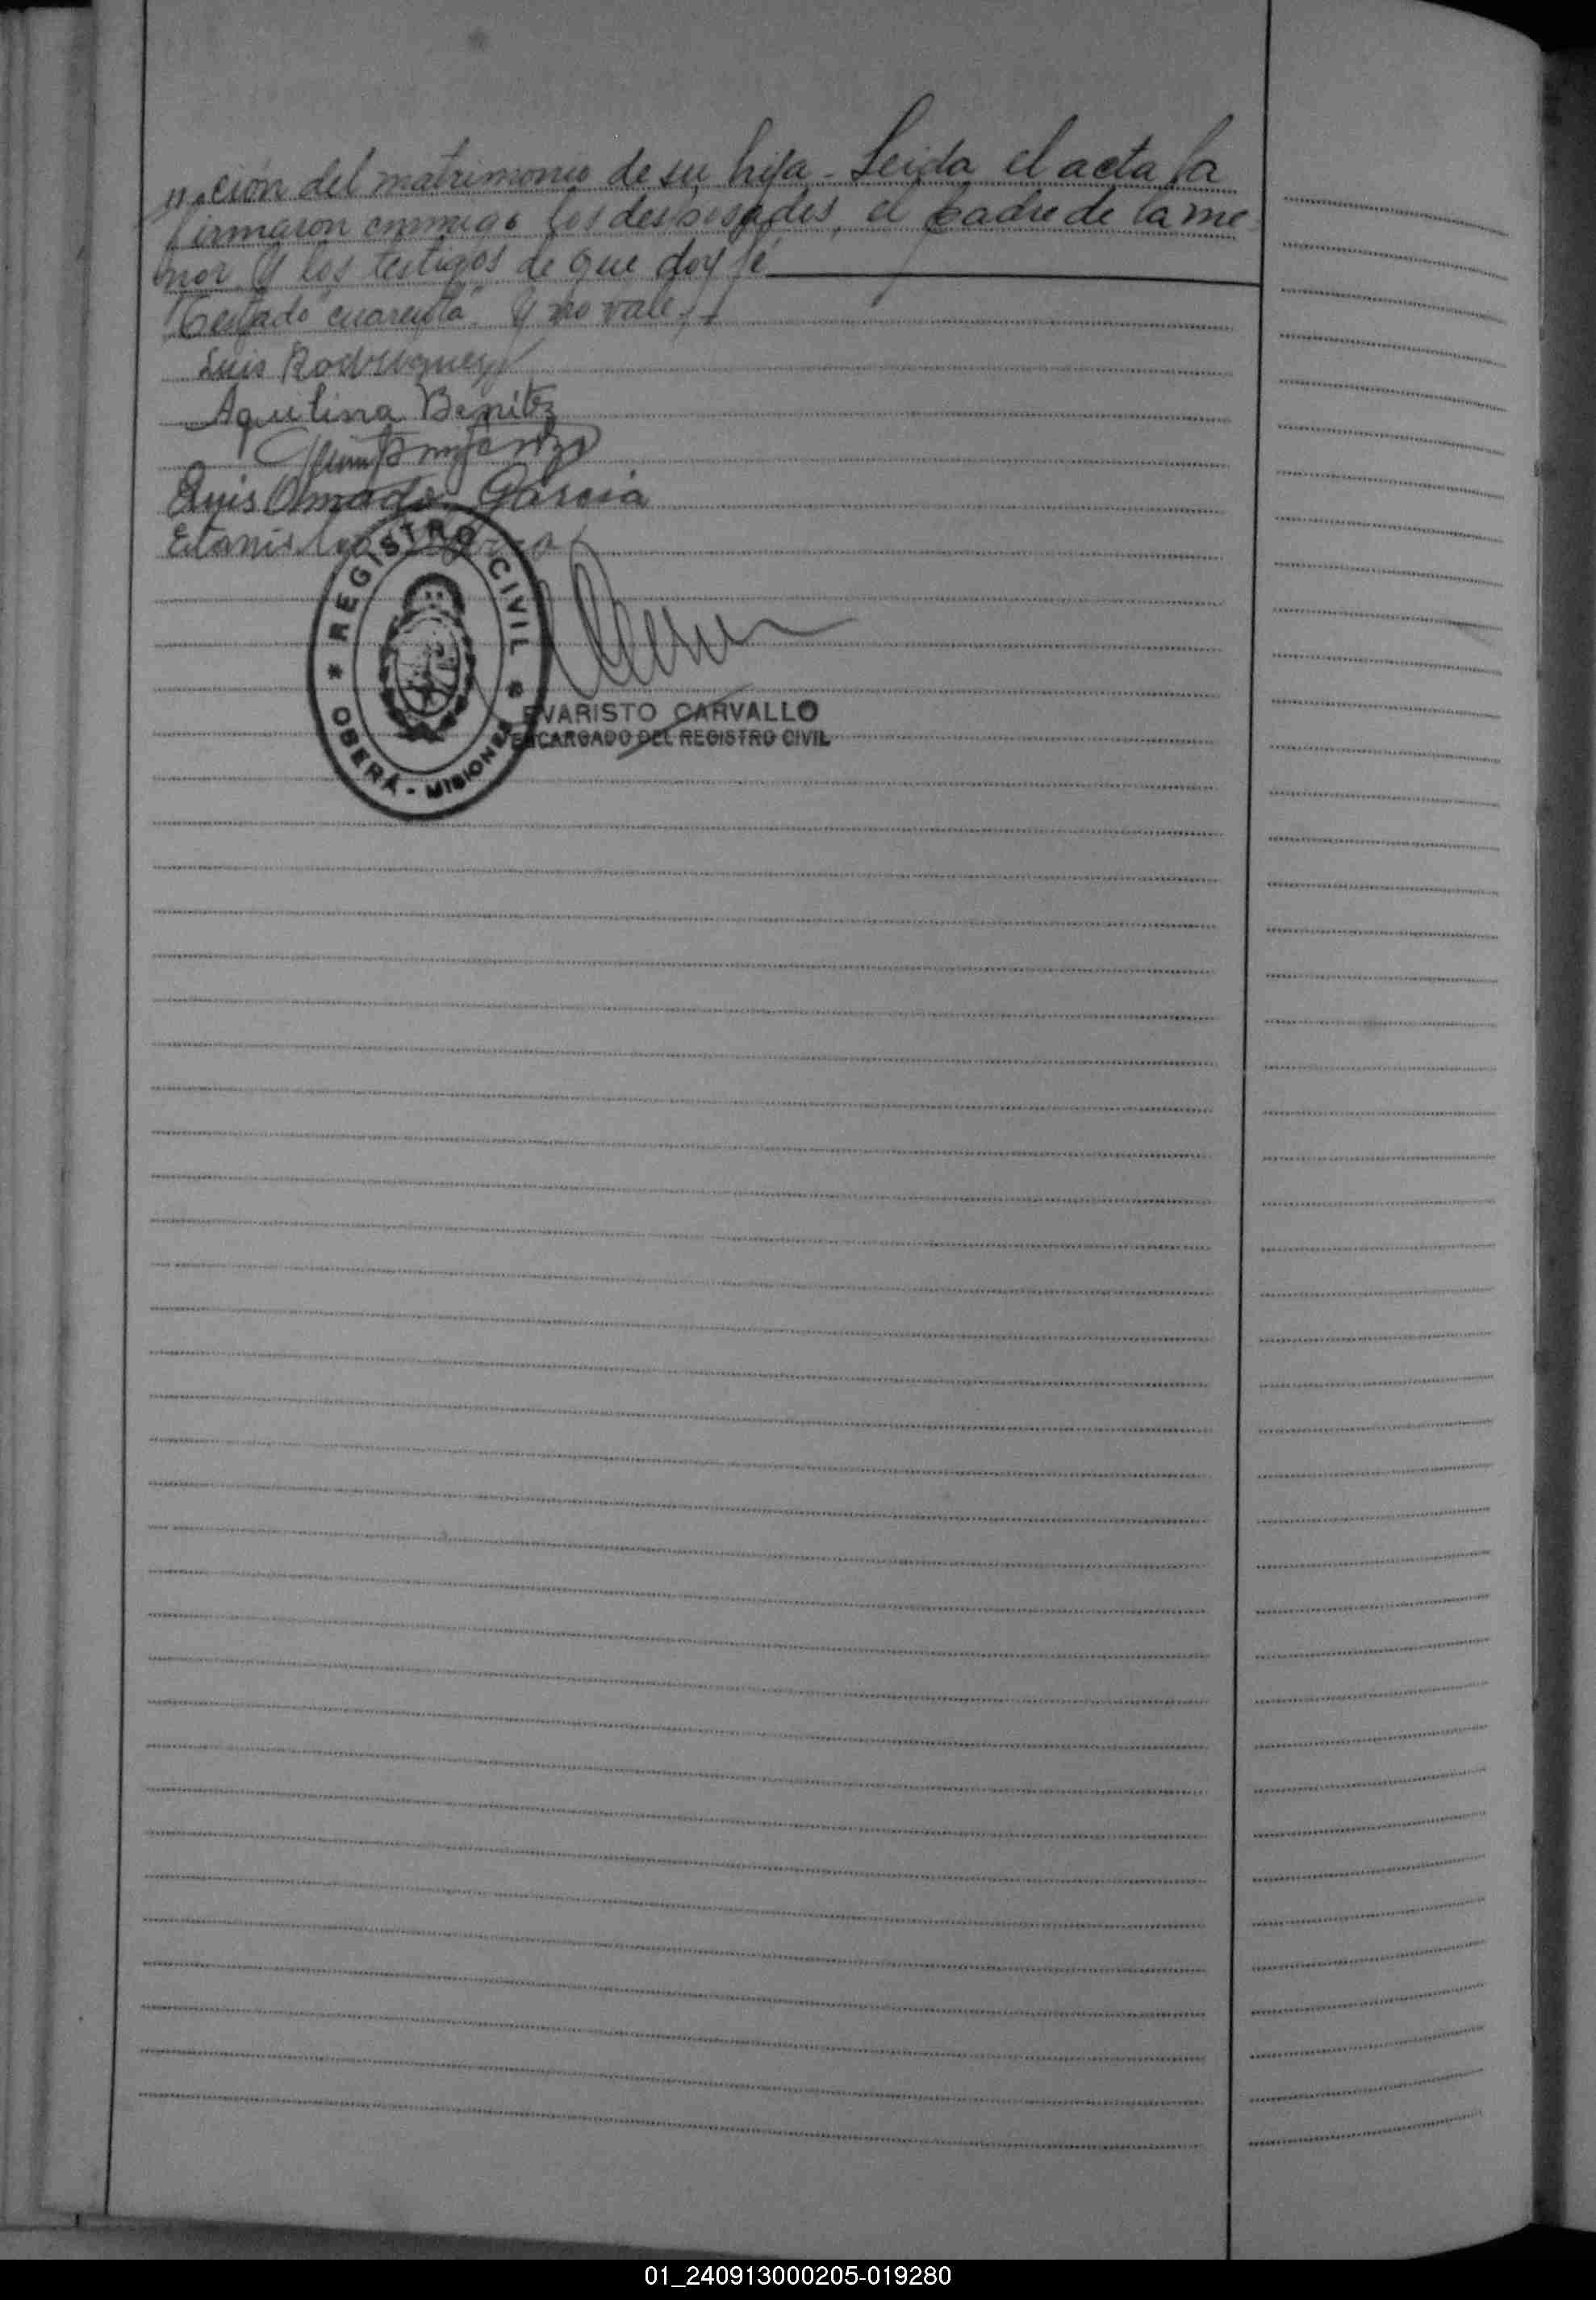 ción del matrimonio de su hija - Leida el acta la
firmaron conmigo los desposados, el padre de la me-
nor y los testigos de que doy fé
Testado "cuarenta" y no vale
Luis Rodriguez
Aquilina Benitez
Luis Amado Garcia
REGISTRO CIVIL
OBERÁ - MISIONES
EVARISTO CARVALLO
ENCARGADO DEL REGISTRO CIVIL
01_240913000205-019280